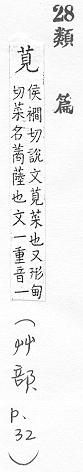 28
類篇
莧
侯襉切說文莧菜也又形甸
切菜名蔏薩也文一重音一
(艸韻
p.
32)